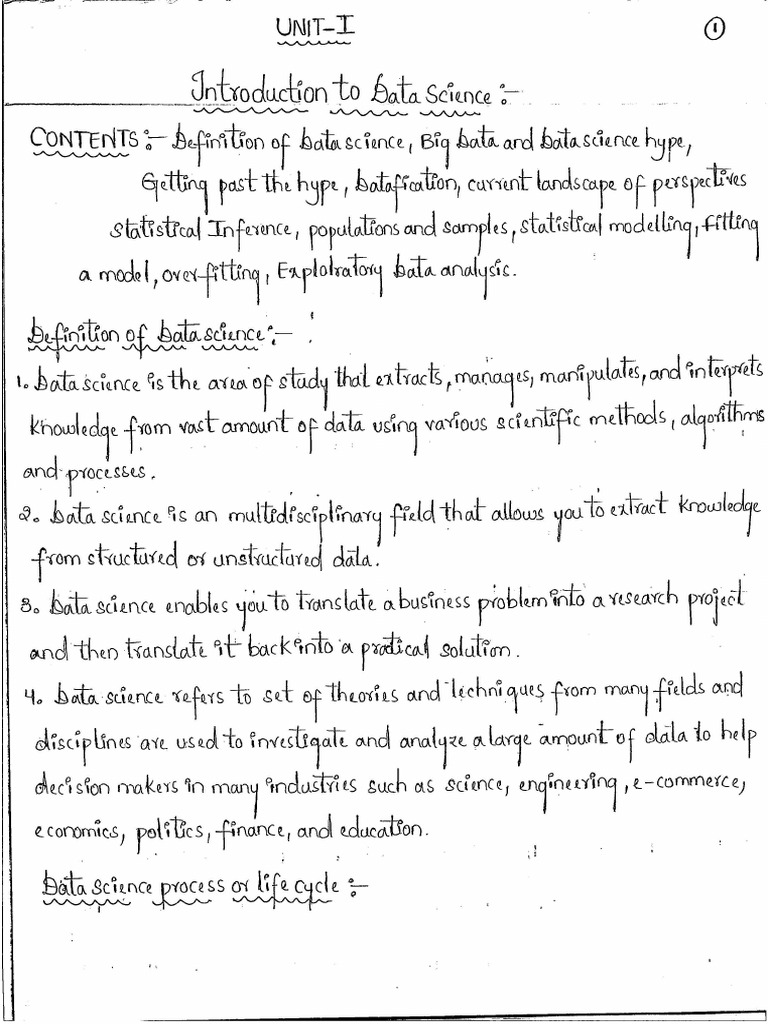 UNIT-I
1
Introduction to Data Science:-
CONTENTS:- Definition of Data science, Big Data and Data science hype,
Getting past the hype, Datafication, current landscape of perspectives
statistical Inference, populations and samples, statistical modelling, fitting
a model, over-fitting, Explolratory Data analysis.
Definition of Data science:-
1. Data science is the area of study that extracts, manages, manipulates, and interprets
knowledge from vast amount of data using various scientific methods, algorithms
and processes.
2. Data science is an multidisciplinary field that allows you to extract knowledge
from structured or unstructured data.
3. Data science enables you to translate a business problem into a research project
and then translate it back into a pratical solution.
4. Data science refers to set of theories and techniques from many fields and
disciplines are used to investigate and analyze a large amount of data to help
decision makers in many industries such as science, engineering, e-commerce,
economics, politics, finance, and education.
Data science process or life cycle:-